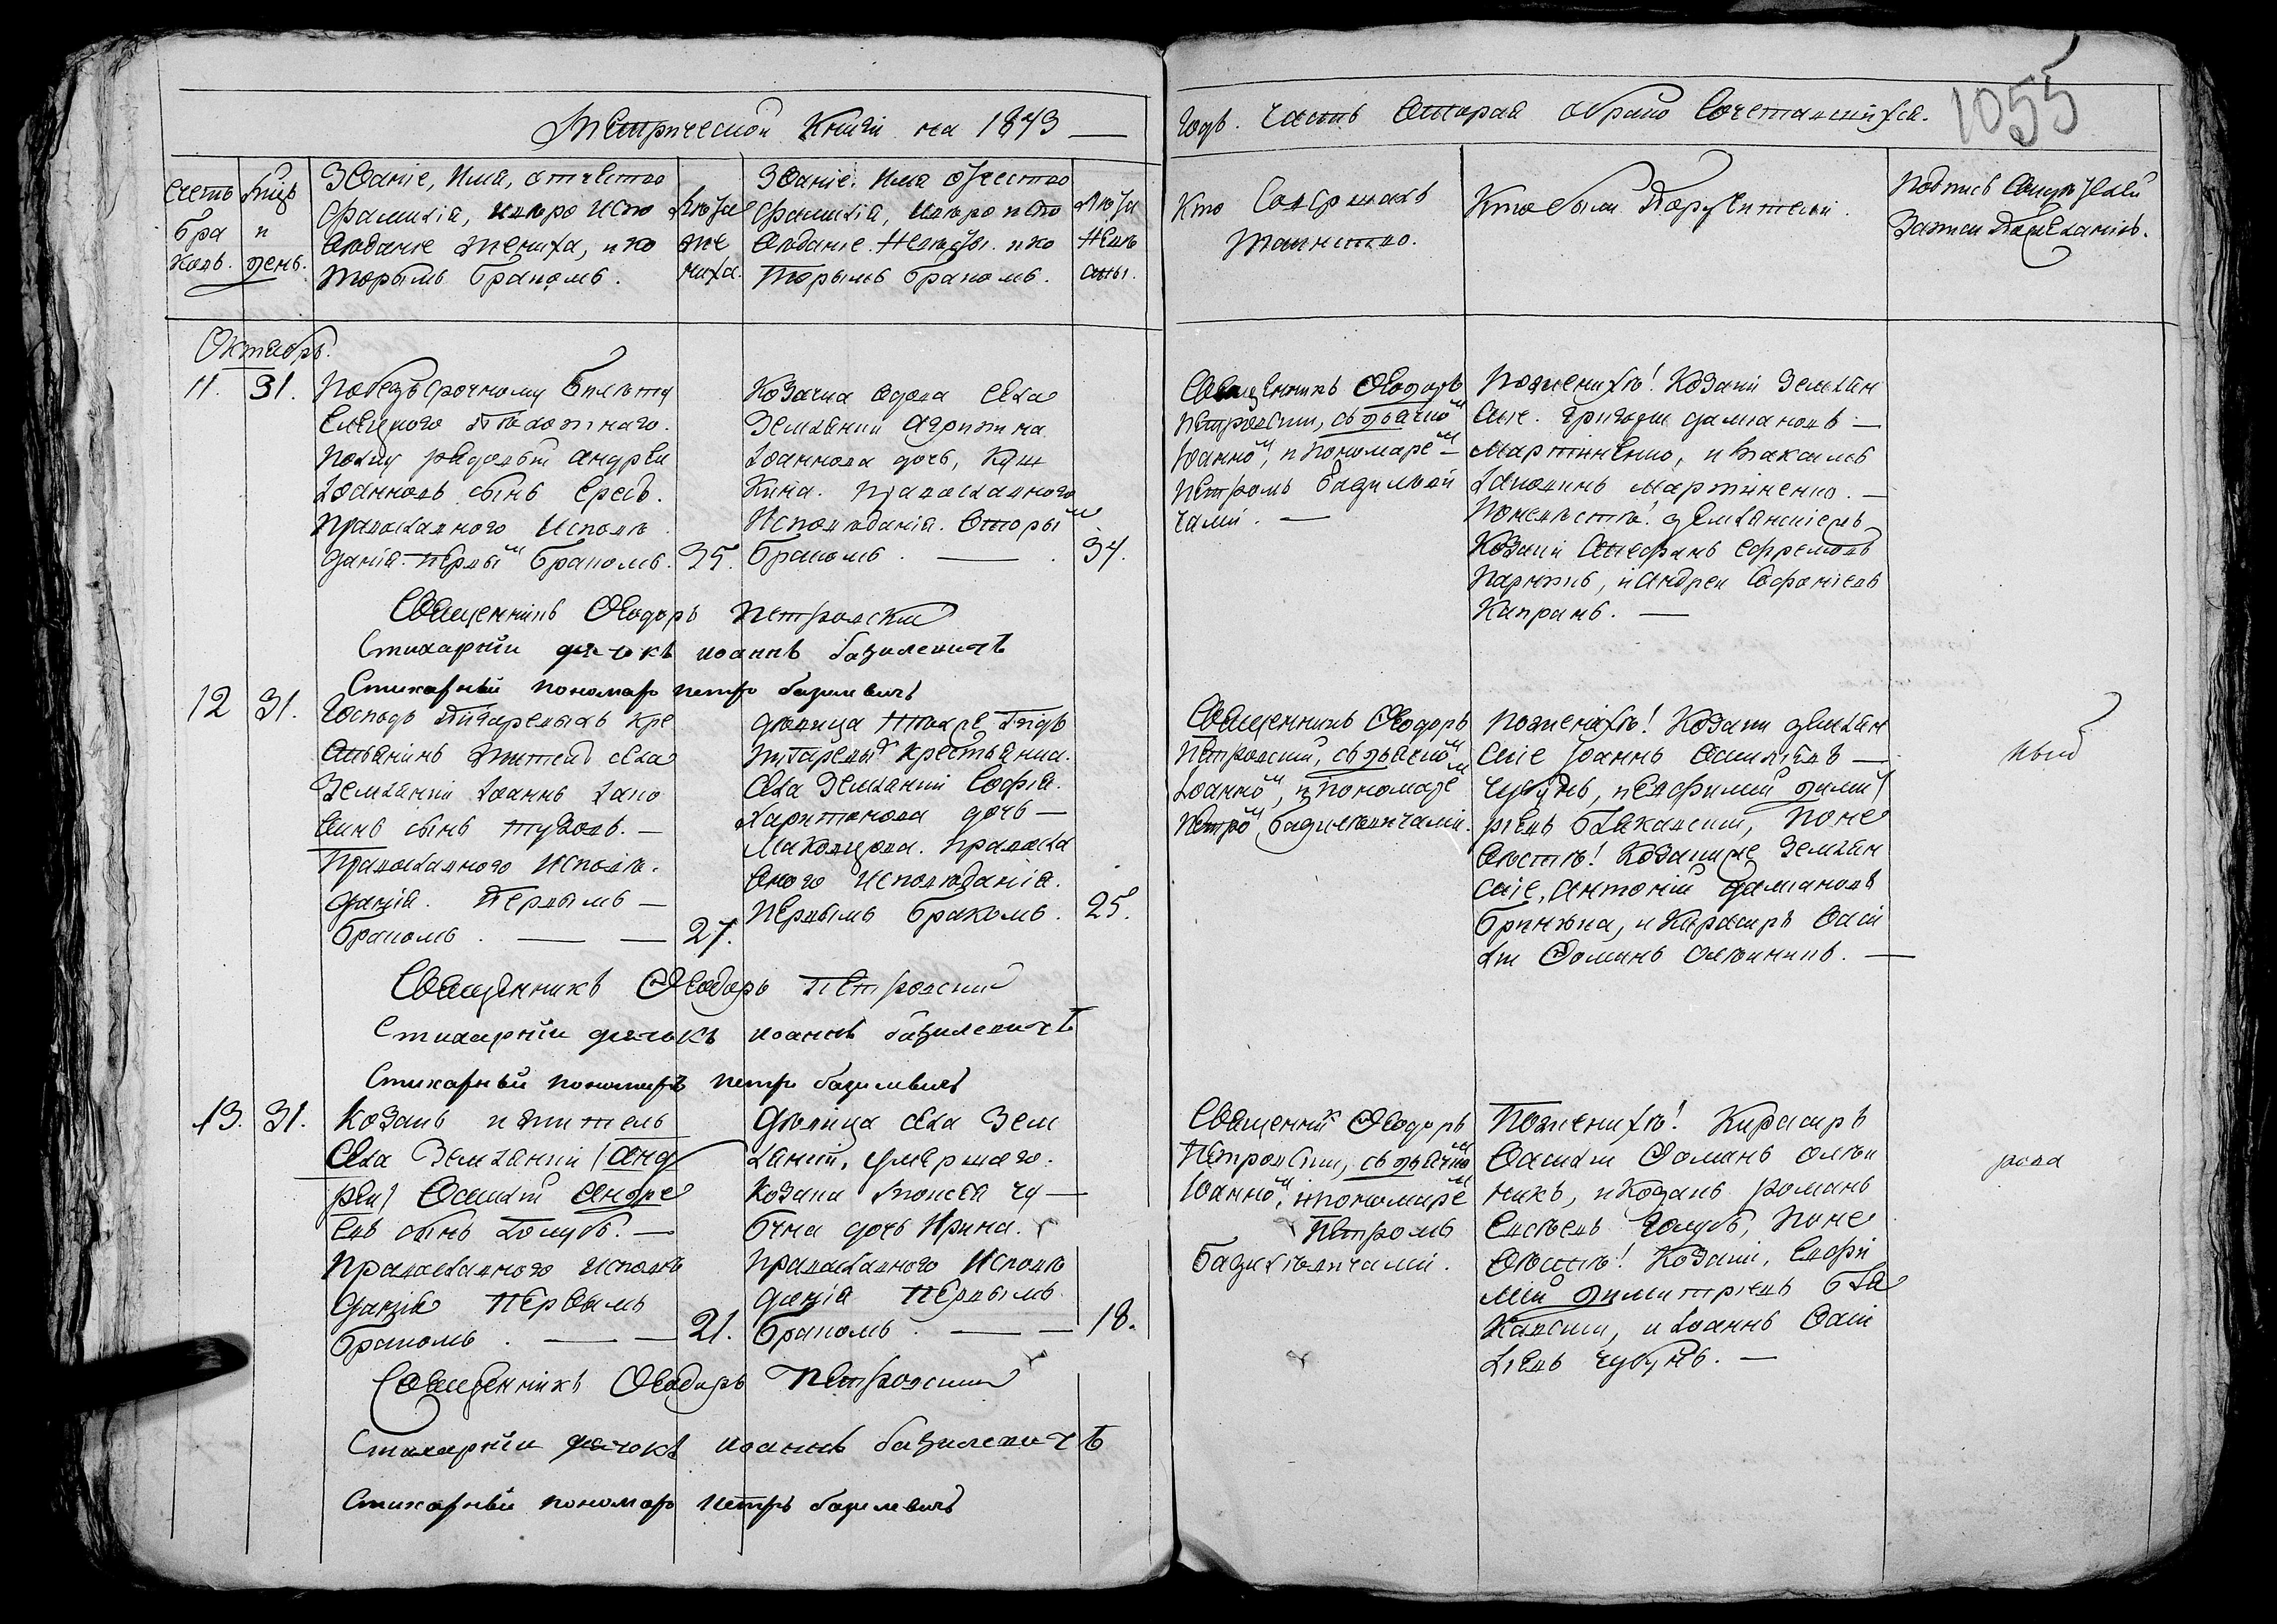 Метрической Книги на 1873
годъ. Часть Вторая о бракосочетавшихся.
1055
Счетъ браковъ.
Мѣсяцъ и день.
Званіе, имя, отчество
фамилія, и вѣроиспо
вѣданіе жениха, и ко
торымъ бракомъ.
Лѣта
же
ниха.
Званіе, имя отчество
фамилія, и вѣроиспо
вѣданіе невѣсты. и ко
торымъ бракомъ.
Лѣта
невѣ
сты.
Кто Совершалъ
таинство.
Кто были Поручители.
Подпись Свидѣтелей
Записи по желанію.
Октябрь.
11. 31.
По безъсрочному билету
Елецкого Пѣхотнаго.
Полку рядовый Андрей
Іоанновъ сынъ
Православного Исповѣ
данія. первым бракомъ. 35.
Козачка вдова села
Землянки Агрипина
Іоаннова дочь,
кина. Православного
Исповѣданія. Вторым
бракомъ. 34.
Священникъ Ѳеодоръ
Петровскій, съ дьячком
Іоанном, и пономарем
Петромъ Базилеви
чами.
По женихѣ! Козаки Землян
скіе. Григорій Даміановъ
Мартиненко, и
Мартиненко.
По невѣстѣ! Землянскіежъ
Козаки Стефанъ Ефремовъ
и Андрей Софроніевъ
Капранъ.
Священникъ Ѳеодоръ Петровскій
Стихарній дячокъ иоаннъ базилевичъ
Стихарный пономарь петръ базилевичъ
12 31.
Господъ кре
стьянинъ житель села
Землянки Іоаннъ
сынъ
Православного Исповѣ.
данія. Первымъ
бракомъ. 27.
дѣвица
крестьянка.
села Землянки Софія.
Харитонова дочь
Правосла
вного Исповѣданія.
первымъ бракомъ. 25.
Священникъ Ѳеодоръ
Петровскій, съ дьячком
Іоанном, и пономаре
Петром Базилевичами.
По женихѣ! Козаки Землян
скіе Іоаннъ Василіевъ
Чубунъ, и Евфимій Дими
ріевъ По не
вѣстѣ! Козаки же Землян
скіе, Антоній Даміановъ
и Кирасиръ Васи
лій Ѳоминъ
Священникъ Ѳеодоръ Петровскій
Стихарній дячокъ иоаннъ базилевичъ
Стихарный пономарь петръ базилевичъ
13. 31.
Козакъ и житель
села Землянки (Анд
рей) Василій Андре
евъ сынъ Голубъ.
Православного Исповѣ
данія Первымъ
бракомъ. 21.
Дѣвица села Зем
лянки, умершаго.
Козака
дочь Ирина.
Православного Исповѣ
данія Первымъ
бракомъ. 18.
Священник Ѳеодоръ
Петровскій, съ дьячком
Іоанном, и пономаре
Петромъ
Базилевичами.
По женихѣ! Кирасиръ
Василій Ѳоминъ
и Козакъ Романъ
Голубъ, По не
вѣстѣ! Козаки, Евфи
мій Димитріевъ
и Іоаннъ Васи
ліевъ Чубунъ.
Священникъ Ѳеодоръ Петровскій
Стихарній дячокъ иоаннъ базилевичъ
Стихарный пономарь петръ базилевичъ